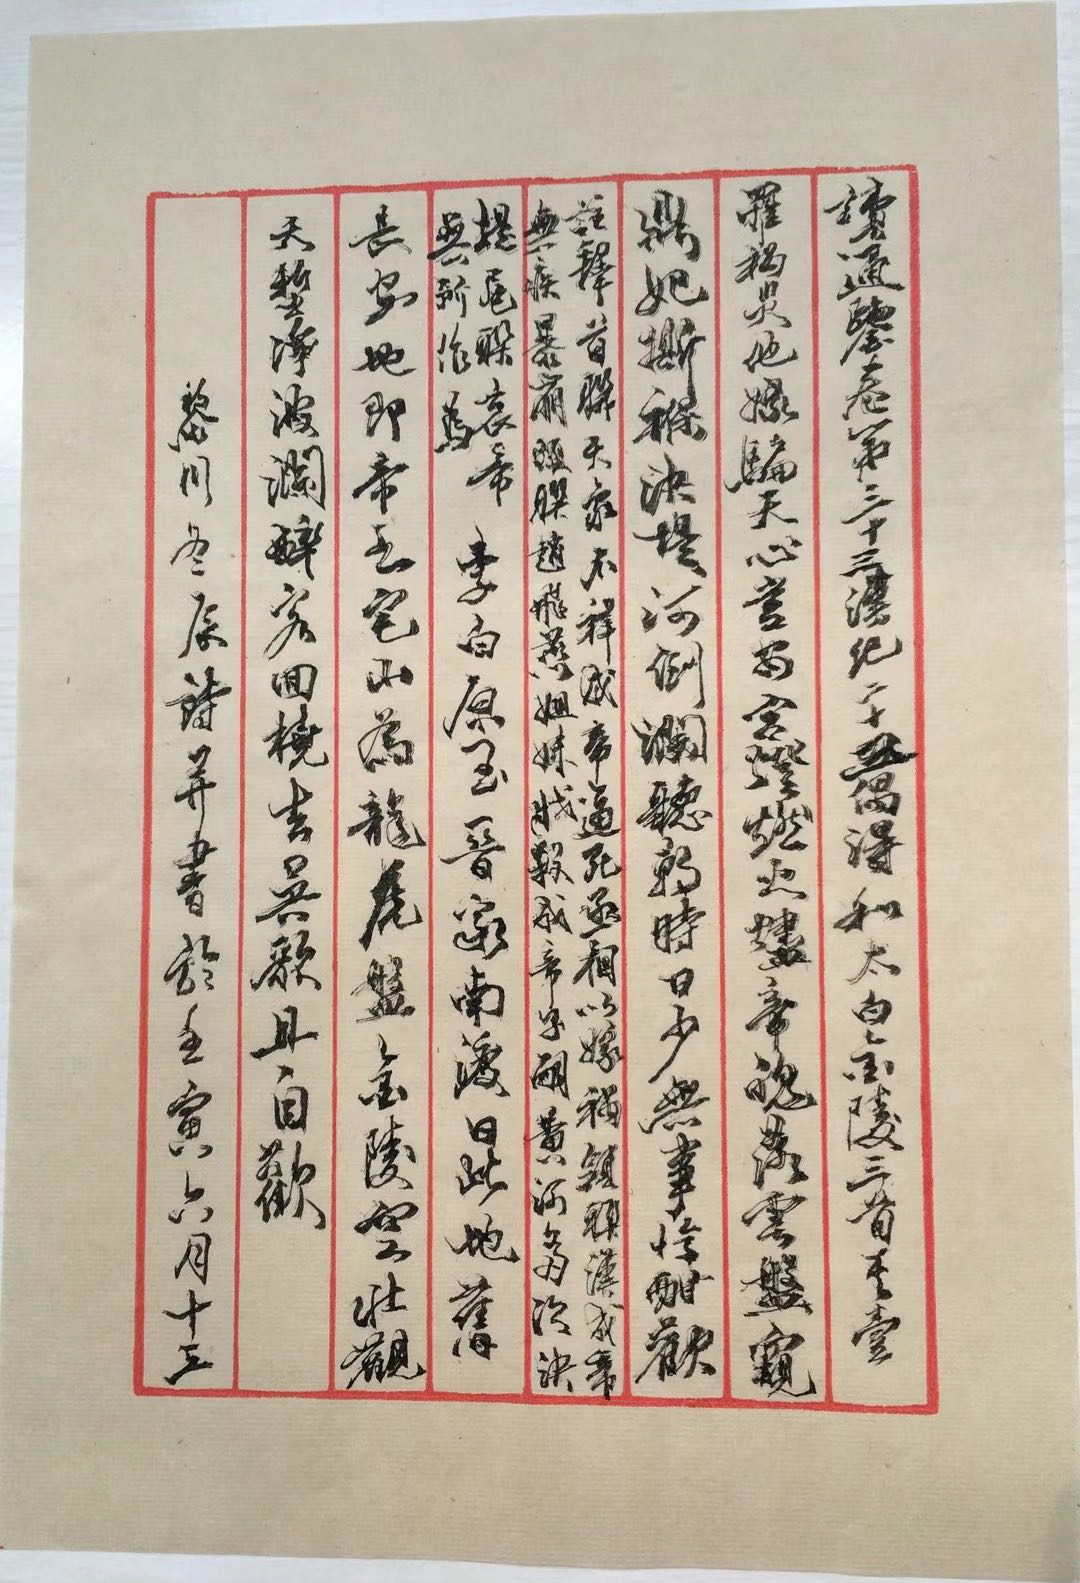 讀通鑒卷第三十三漢紀二十五偶得和太白金陵三首其壹
罹禍异他嫁騙天心意安宮燈燃火燼帝魂落雲盤窺
鼎妃撕裸決堤河倒瀾聽朝時日少無事恰酣歡
註釋首聯天家不祥成帝逼死丞相以嫁禍頷聯漢成帝
無疾暴崩頸聯趙飛燕姐妹戕殺成帝子嗣黃河多次決
堤尾聯哀帝
無所作為
李白原玉晉家南渡日此地舊
長安地即帝王宅山為龍虎盤金陵空壯觀
天塹淨波瀾醉客回橈去吳歌且自歡
黎川冬辰詩并書於壬寅六月十三